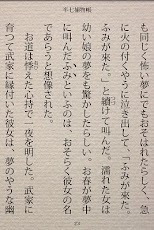 半七捕物帳
も同じ怖い夢にでもおそはれたらしく、急
に火の付くやうに泣き出して、「ふみが来た。
ふみが来た。」と続けて叫んだ。濡れた女は
幼い娘の夢をも驚かしたらしい。お春が夢中
に叫んだふみといふのは、おそらく彼女の名
であらうと想像された。
お道は悸えた心持で一夜を明した。武家に
育つて武家に縁付いた彼女は、夢のやうな幽